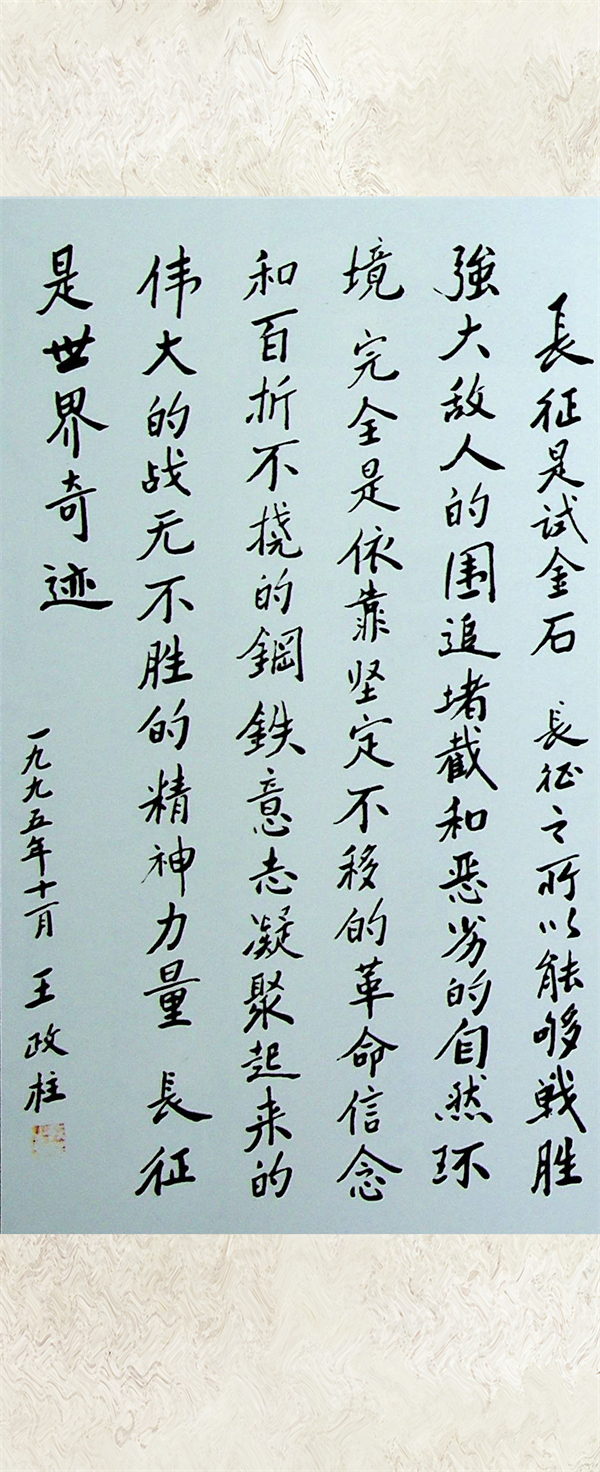 長征是试金石 長征之所以能够戰胜
強大敌人的围追堵截和恶劣的自然环
境 完全是依靠坚定不移的革命信念
和百折不挠的鋼鉄意志凝聚起来的
伟大的战无不胜的精神力量 長征
是世界奇迹
一九九五年十一月 王政柱